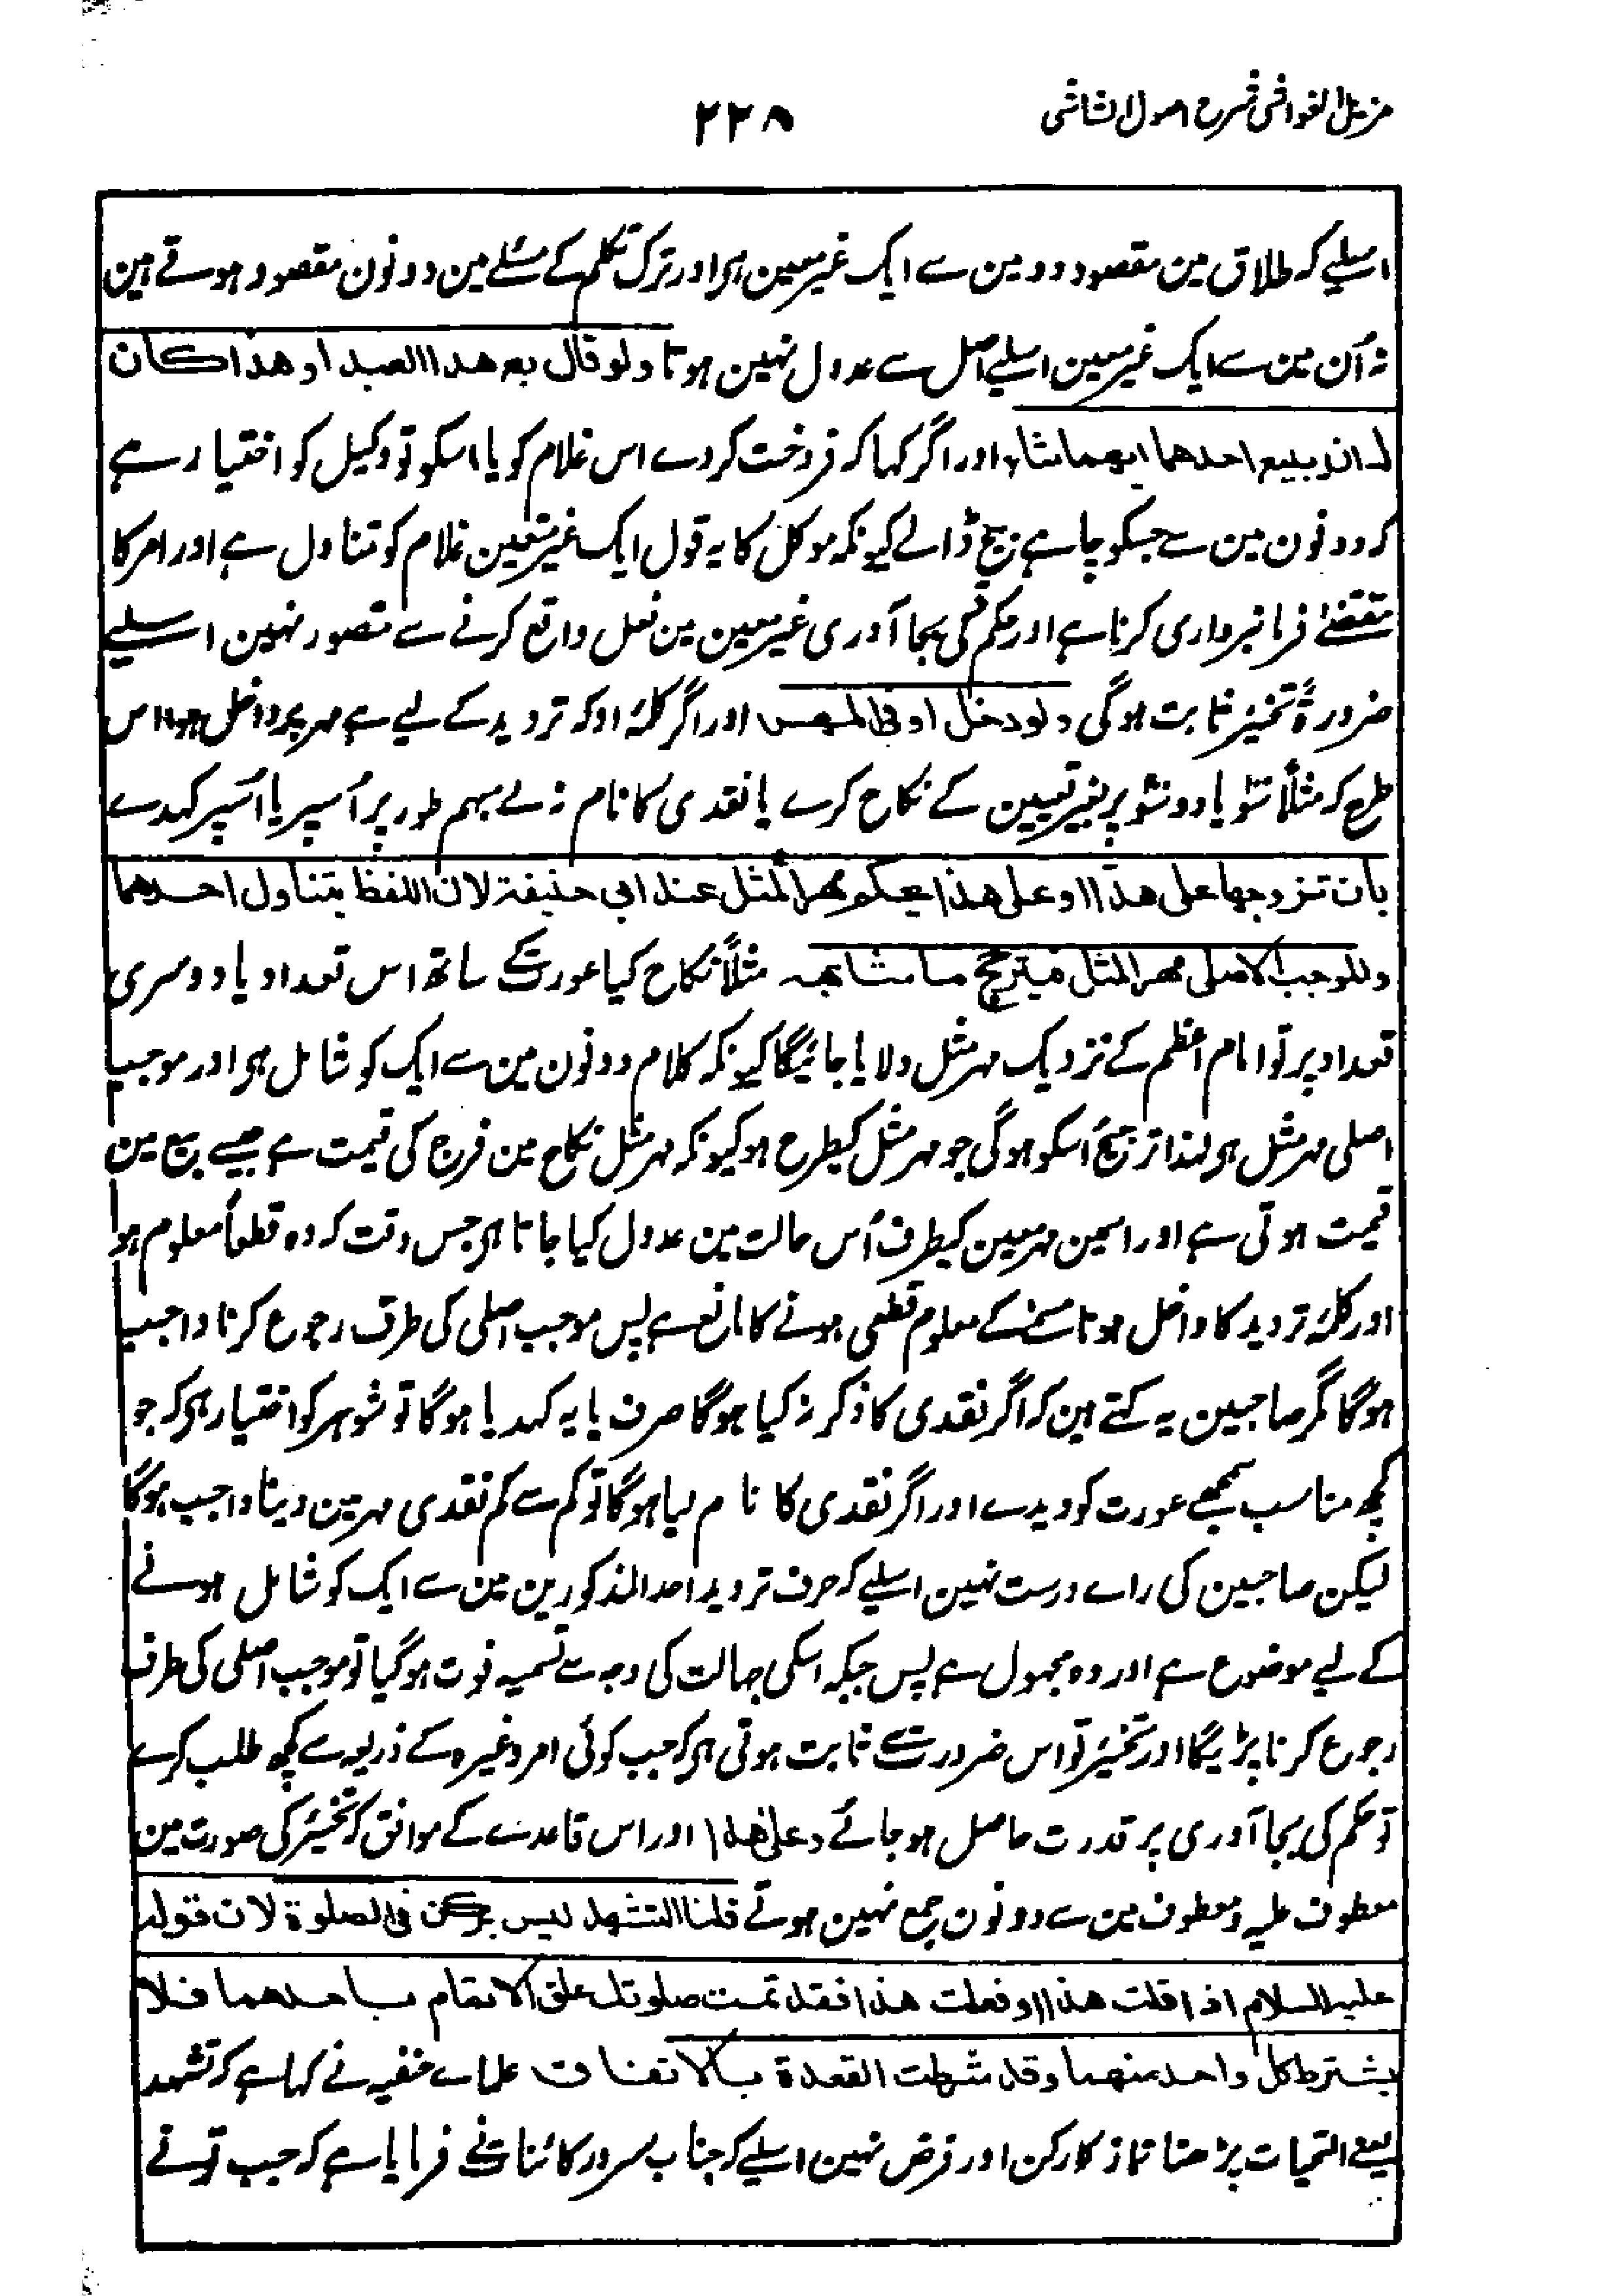 مزیل الغواشی شرح اصول الشاشی
۲۲۸
اسلیے کہ طلاق مین مقصود دو مین سے ایک غیر معین ہی اور ترک تکلم کے مسئلے مین دونون مقصود ہوتے ہین
نہ اُن مین سے ایک غیر معین اسلیے اصل سے عدول نہین ہوتا ولو قال بع هذا العبد او هذا كان
له ان يبيع احدهما ايهما شاء اور اگر کہا کہ فروخت کردے اس غلام کو یا اسکو تو وکیل کو اختیار ہے
کہ دونون مین سے جسکو چاہے بیچ ڈالے کیونکہ موکل کا یہ قول ایک غیر متعین غلام کو تناول ہے اور امر کا
مقتضےٰ فرمانبرداری کرنا ہے اور حکم کی بجا آوری غیر معین مین فعل واقع کرنے سے متصور نہین اسلیے
ضرورۃً تخییر ثابت ہوگی ولو دخل او فى المهر اور اگر کلمۂ او کہ تردید کے لیے ہے مہر پر داخل ہو اس
طرح کہ مثلاً سَو یا دو سَو پر بغیر تعیین کے نکاح کرے یا نقدی کا نام نہ لے مبہم طور پر اُسپر یا اُسپر کہدے
بان تزوجها على هذا او على هذا يحكم مهر المثل عند ابي حنيفة لان اللفظ يتناول احدهما
والموجب الاصلى مهر المثل فيترجح ما يشابهه مثلاً نکاح کیا عورت کے ساتھ اس تعداد یا دوسری
تعداد پر تو امام اعظم کے نزدیک مہر مثل دلایا جائیگا کیونکہ کلام دونون مین سے ایک کو شامل ہی اور موجب
اصلی مہر مثل ہی لہذا ترجیح اُسکو ہوگی جو مہر مثل کیطرح ہو کیونکہ مہر مثل نکاح مین فرج کی قیمت ہے جیسے بیع مین
قیمت ہوتی ہے اور اسمین مہر معین کیطرف اُس حالت مین عدول کیا جاتا ہی جس وقت کہ وہ قطعاً معلوم ہو
اور کلمۂ تردید کا داخل ہونا مسمّے کے معلوم قطعی ہونے کا مانع ہے پس موجب اصلی کی طرف رجوع کرنا واجب
ہوگا مگر صاحبین یہ کہتے ہین کہ اگر نقدی کا ذکر نہ کیا ہوگا صرف یا یہ کہدیا ہوگا تو شوہر کو اختیار ہی کہ جو
کچھ مناسب سمجھے عورت کو دیدے اور اگر نقدی کا نام لیا ہوگا تو کم سے کم نقدی مہر مین دینا واجب ہوگا
لیکن صاحبین کی راے درست نہین اسلیے کہ حرف تردید احد المذکورین مین سے ایک کو شامل ہونے
کے لیے موضوع ہے اور وہ مجہول ہے پس جبکہ اسکی جہالت کی وجہ سے تسمیہ فوت ہوگیا تو موجب اصلی کی طرف
رجوع کرنا پڑیگا اور تخییر تو اس ضرورت سے ثابت ہوتی ہی کہ جب کوئی امر وغیرہ کے ذریعہ سے کچھ طلب کرے
تو حکم کی بجا آوری پر قدرت حاصل ہوجائے وعلى هذا اور اس قاعدے کے موافق کہ تخییر کی صورت مین
معطوف علیہ و معطوف مین سے دونون جمع نہین ہوتے قلنا التشهد ليس بركن فى الصلوة لان قوله
عليه السلام اذا قلت هذا او فعلت هذا فقد تمت صلوتك علق الاتمام باحدهما فلا
يشترط كل واحد منهما وقد شرطت القعدة بالاتفاق علماے حنفیہ نے کہا ہے کہ تشہد
یعنے التحیات پڑھنا نماز کا رکن اور فرض نہین اسلیے کہ جناب سرور کائنات نے فرمایا ہے کہ جب تو نے